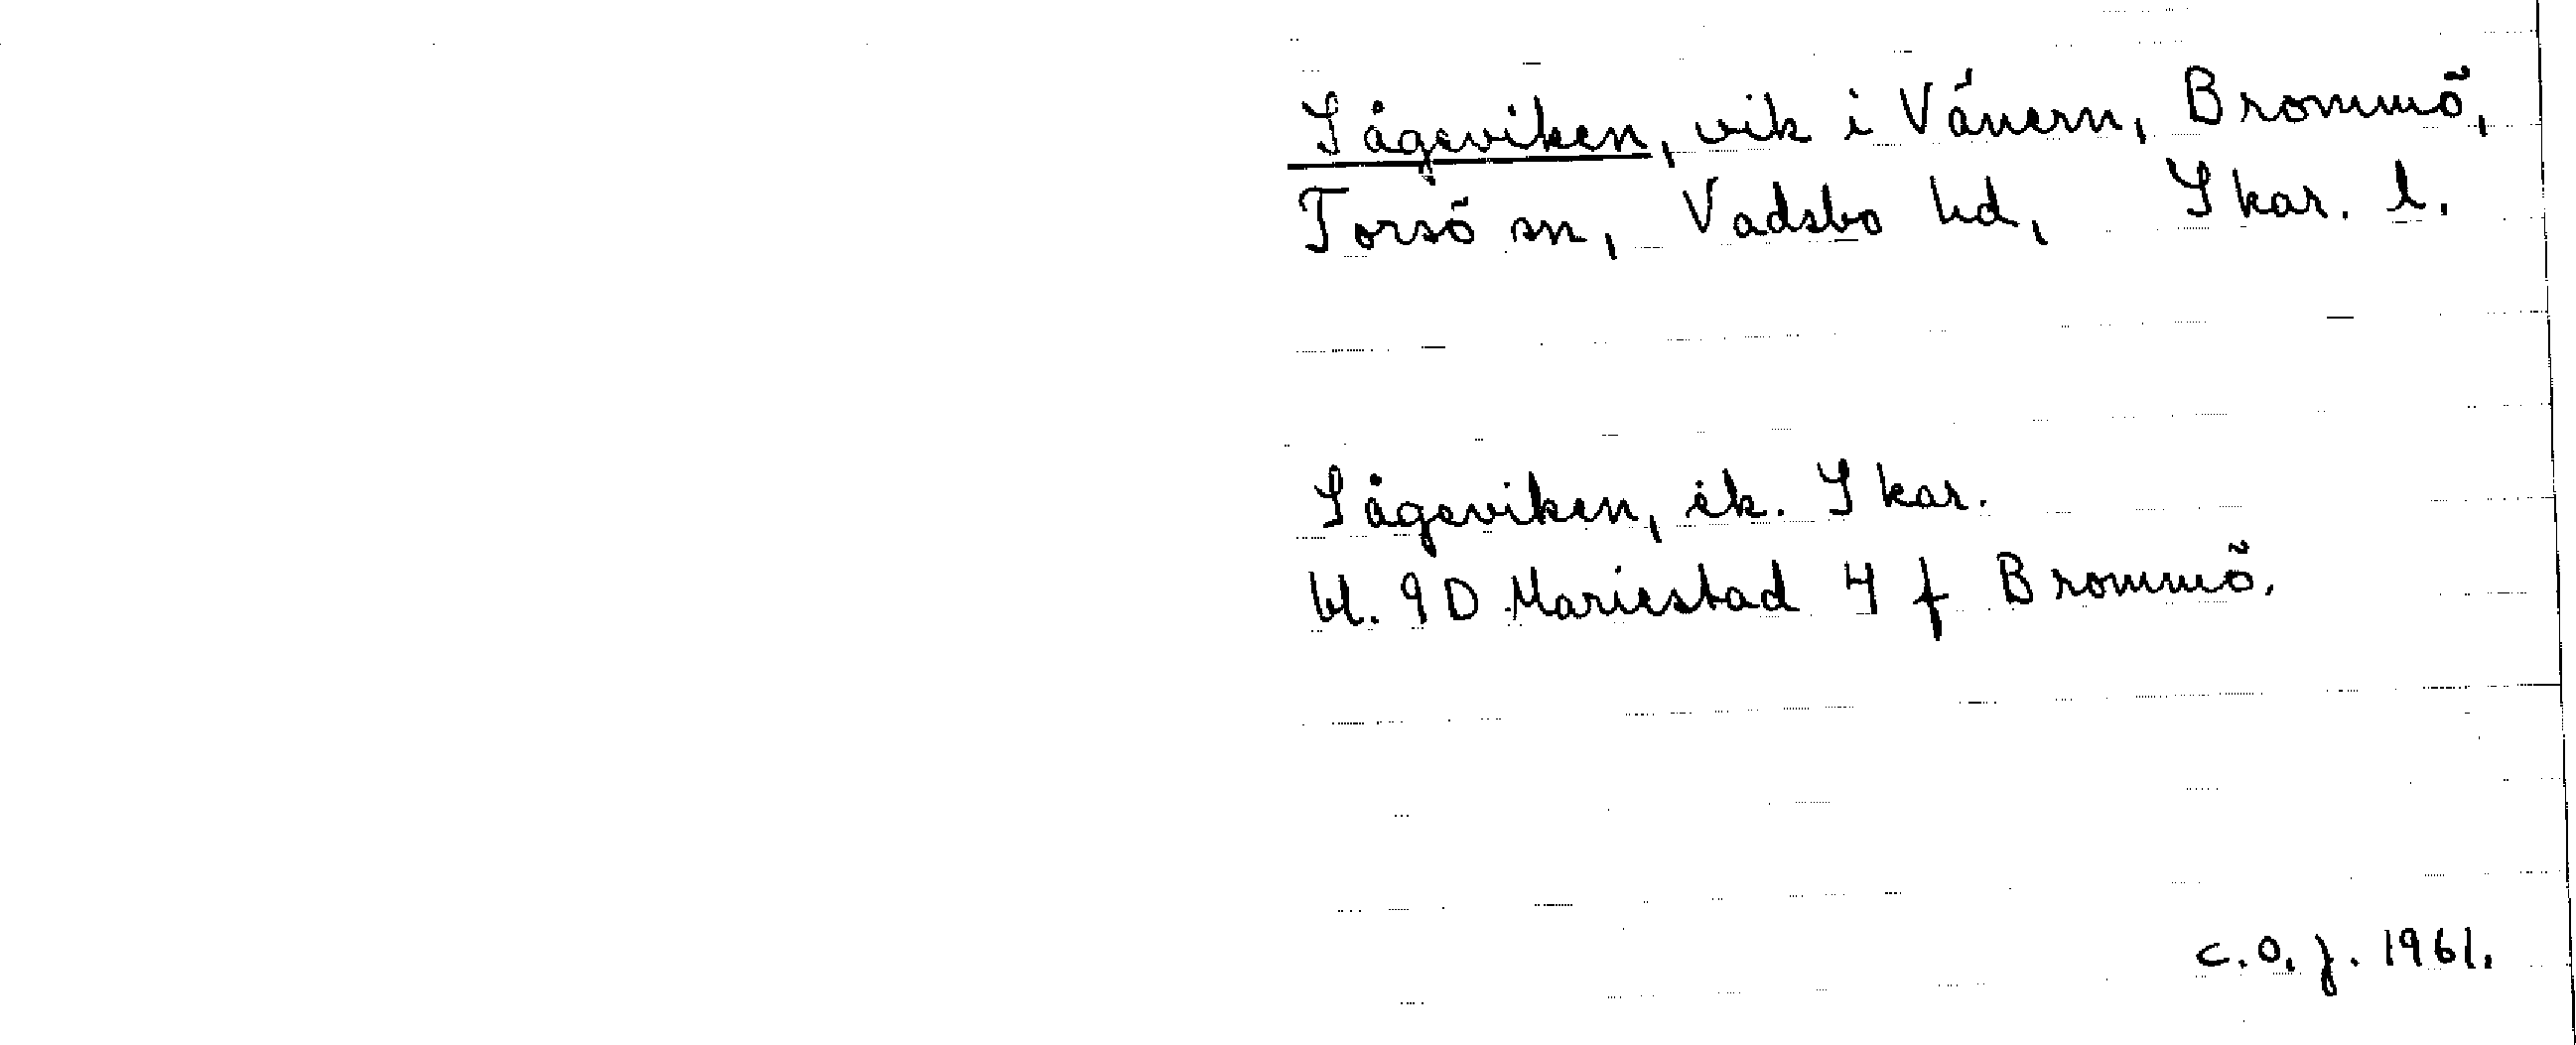 Sågeviken, vik i Vänern, Brommö,
Torsö sn, Vadsbo hd, Skar. l.
Sågeviken, ek. Skar.
bl. 9D Mariestad 4 f Brommö.
C.O.J. 1961.